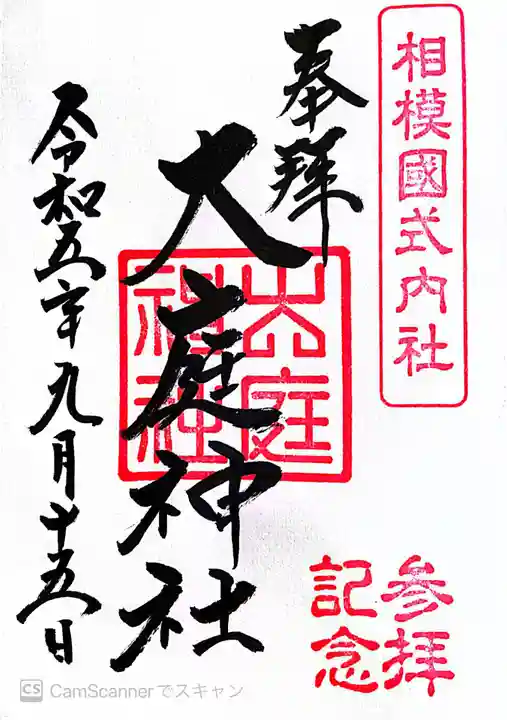 相模國式内社
奉拜
大庭神社
大庭
神社
令和五年九月十五日
参拝
記念
CS CamScannerでスキャン